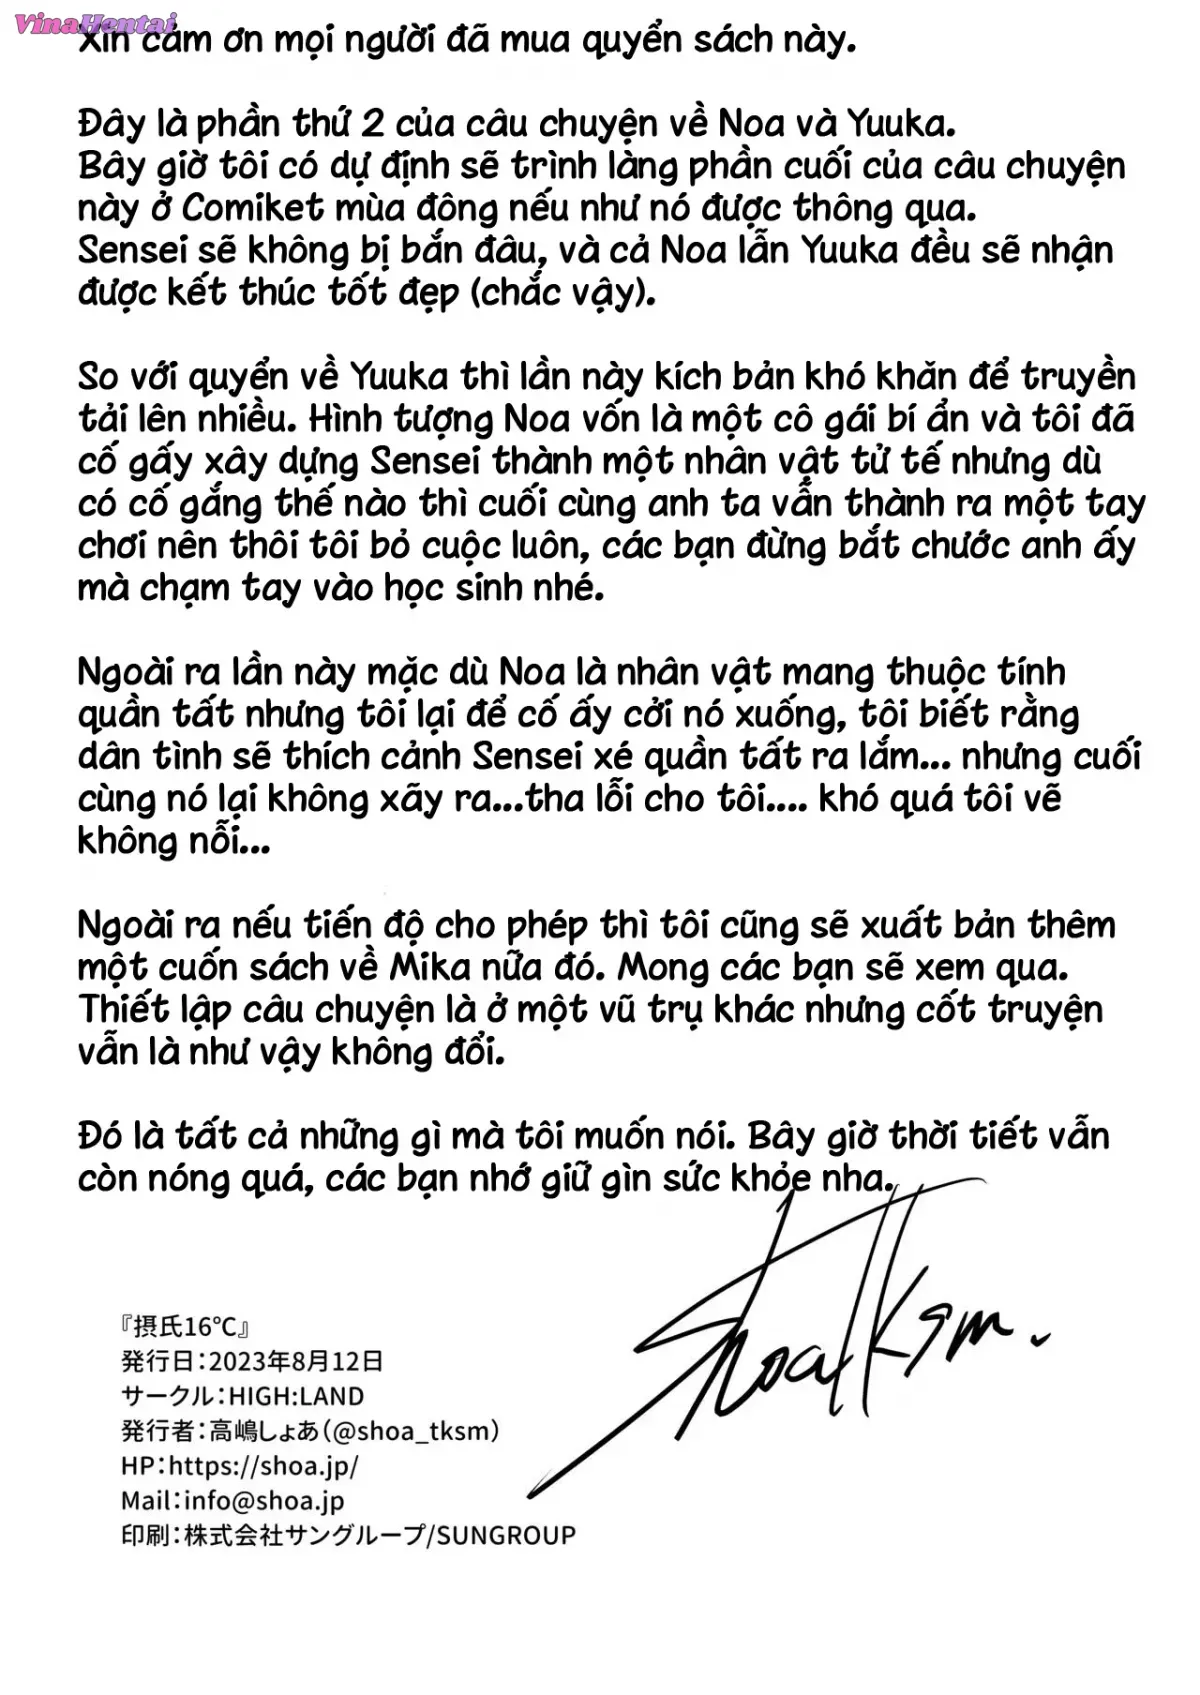 VinaHentai
Xin cảm ơn mọi người đã mua quyển sách này.
Đây là phần thứ 2 của câu chuyện về Noa và Yuuka.
Bây giờ tôi có dự định sẽ trình làng phần cuối của câu chuyện
này ở Comiket mùa đông nếu như nó được thông qua.
Sensei sẽ không bị bắn đâu, và cả Noa lẫn Yuuka đều sẽ nhận
được kết thúc tốt đẹp (chắc vậy).
So với quyển về Yuuka thì lần này kích bản khó khăn để truyền
tải lên nhiều. Hình tượng Noa vốn là một cô gái bí ẩn và tôi đã
cố gấy xây dựng Sensei thành một nhân vật tử tế nhưng dù
có cố gắng thế nào thì cuối cùng anh ta vẫn thành ra một tay
chơi nên thôi tôi bỏ cuộc luôn, các bạn đừng bắt chước anh ấy
mà chạm tay vào học sinh nhé.
Ngoài ra lần này mặc dù Noa là nhân vật mang thuộc tính
quần tất nhưng tôi lại để cố ấy cởi nó xuống, tôi biết rằng
dân tình sẽ thích cảnh Sensei xé quần tất ra lắm... nhưng cuối
cùng nó lại không xãy ra...tha lỗi cho tôi.... khó quá tôi vẽ
không nỗi...
Ngoài ra nếu tiến độ cho phép thì tôi cũng sẽ xuất bản thêm
một cuốn sách về Mika nữa đó. Mong các bạn sẽ xem qua.
Thiết lập câu chuyện là ở một vũ trụ khác nhưng cốt truyện
vẫn là như vậy không đổi.
Đó là tất cả những gì mà tôi muốn nói. Bây giờ thời tiết vẫn
còn nóng quá, các bạn nhớ giữ gìn sức khỏe nha.
Shoa Tksm.
『摂氏16℃』
発行日：2023年8月12日
サークル：HIGH:LAND
発行者：高嶋しょあ（@shoa_tksm）
HP：https://shoa.jp/
Mail：info@shoa.jp
印刷：株式会社サングループ/SUNGROUP